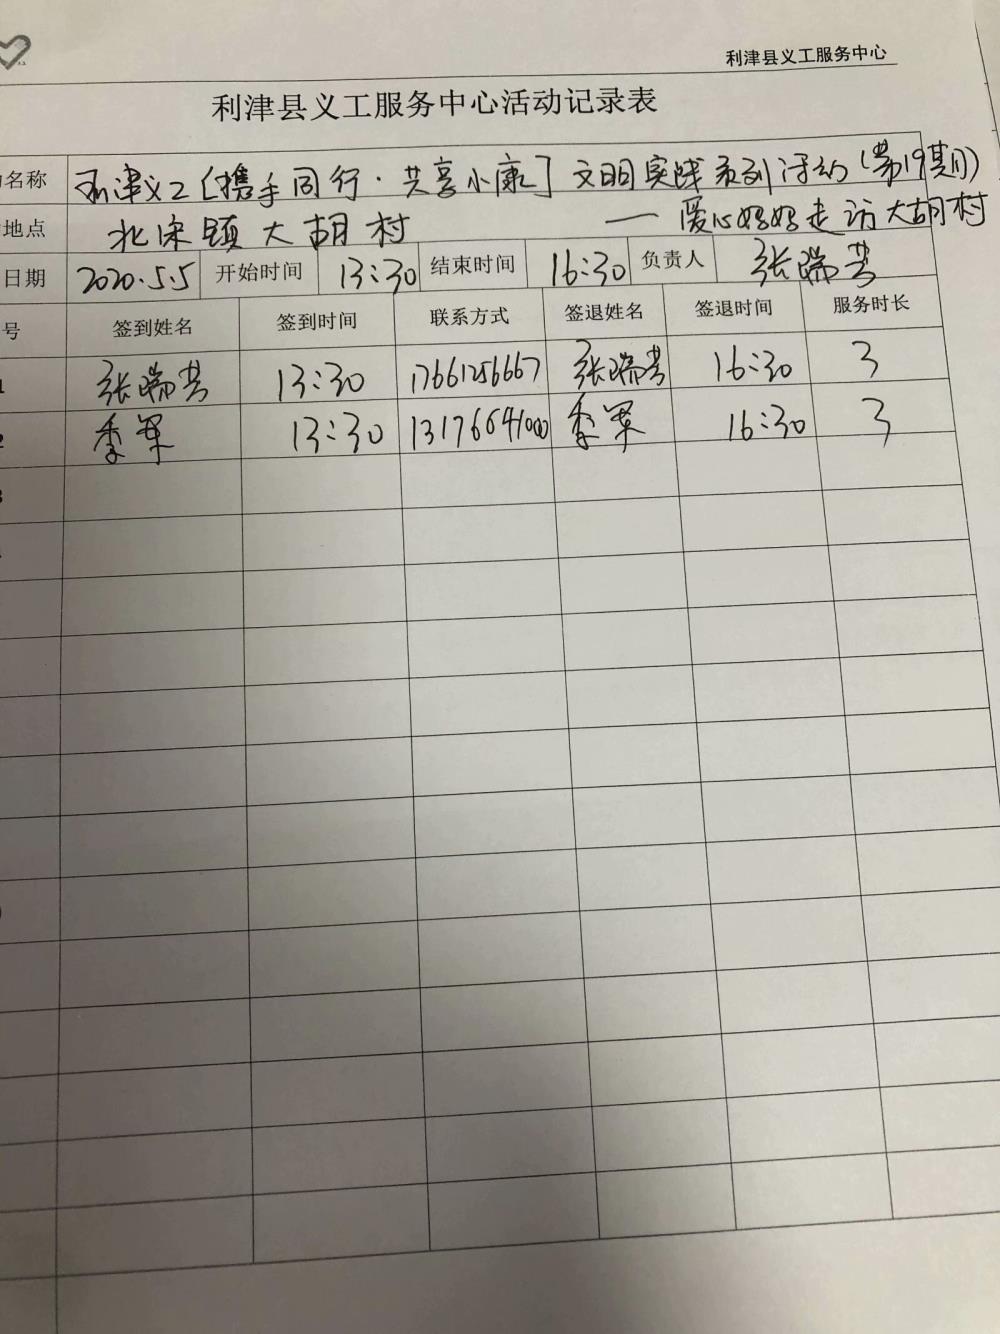 利津县义工服务中心
利津县义工服务中心活动记录表
名称 利津义工[携手同行·共享小康]文明实践系列活动(第19期)
地点 北宋镇大胡村 — 爱心妈妈走访大胡村
日期 2020.5.5 开始时间 13:30 结束时间 16:30 负责人 张瑞芸
号 签到姓名 签到时间 联系方式 签退姓名 签退时间 服务时长
1 张瑞芸 13:30 17661256667 张瑞芸 16:30 3
2 季军 13:30 13176641000 季军 16:30 3